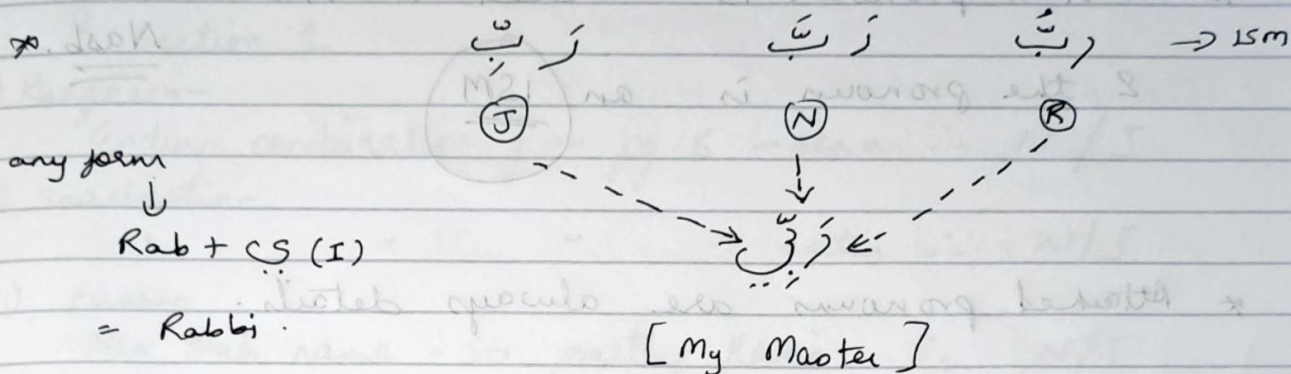 * رَبِّ رَبَّ رَبُّ → ISM
J N R
any form
↓
Rab + ي (I) رَبِّي
= Rabbi. [My Master]